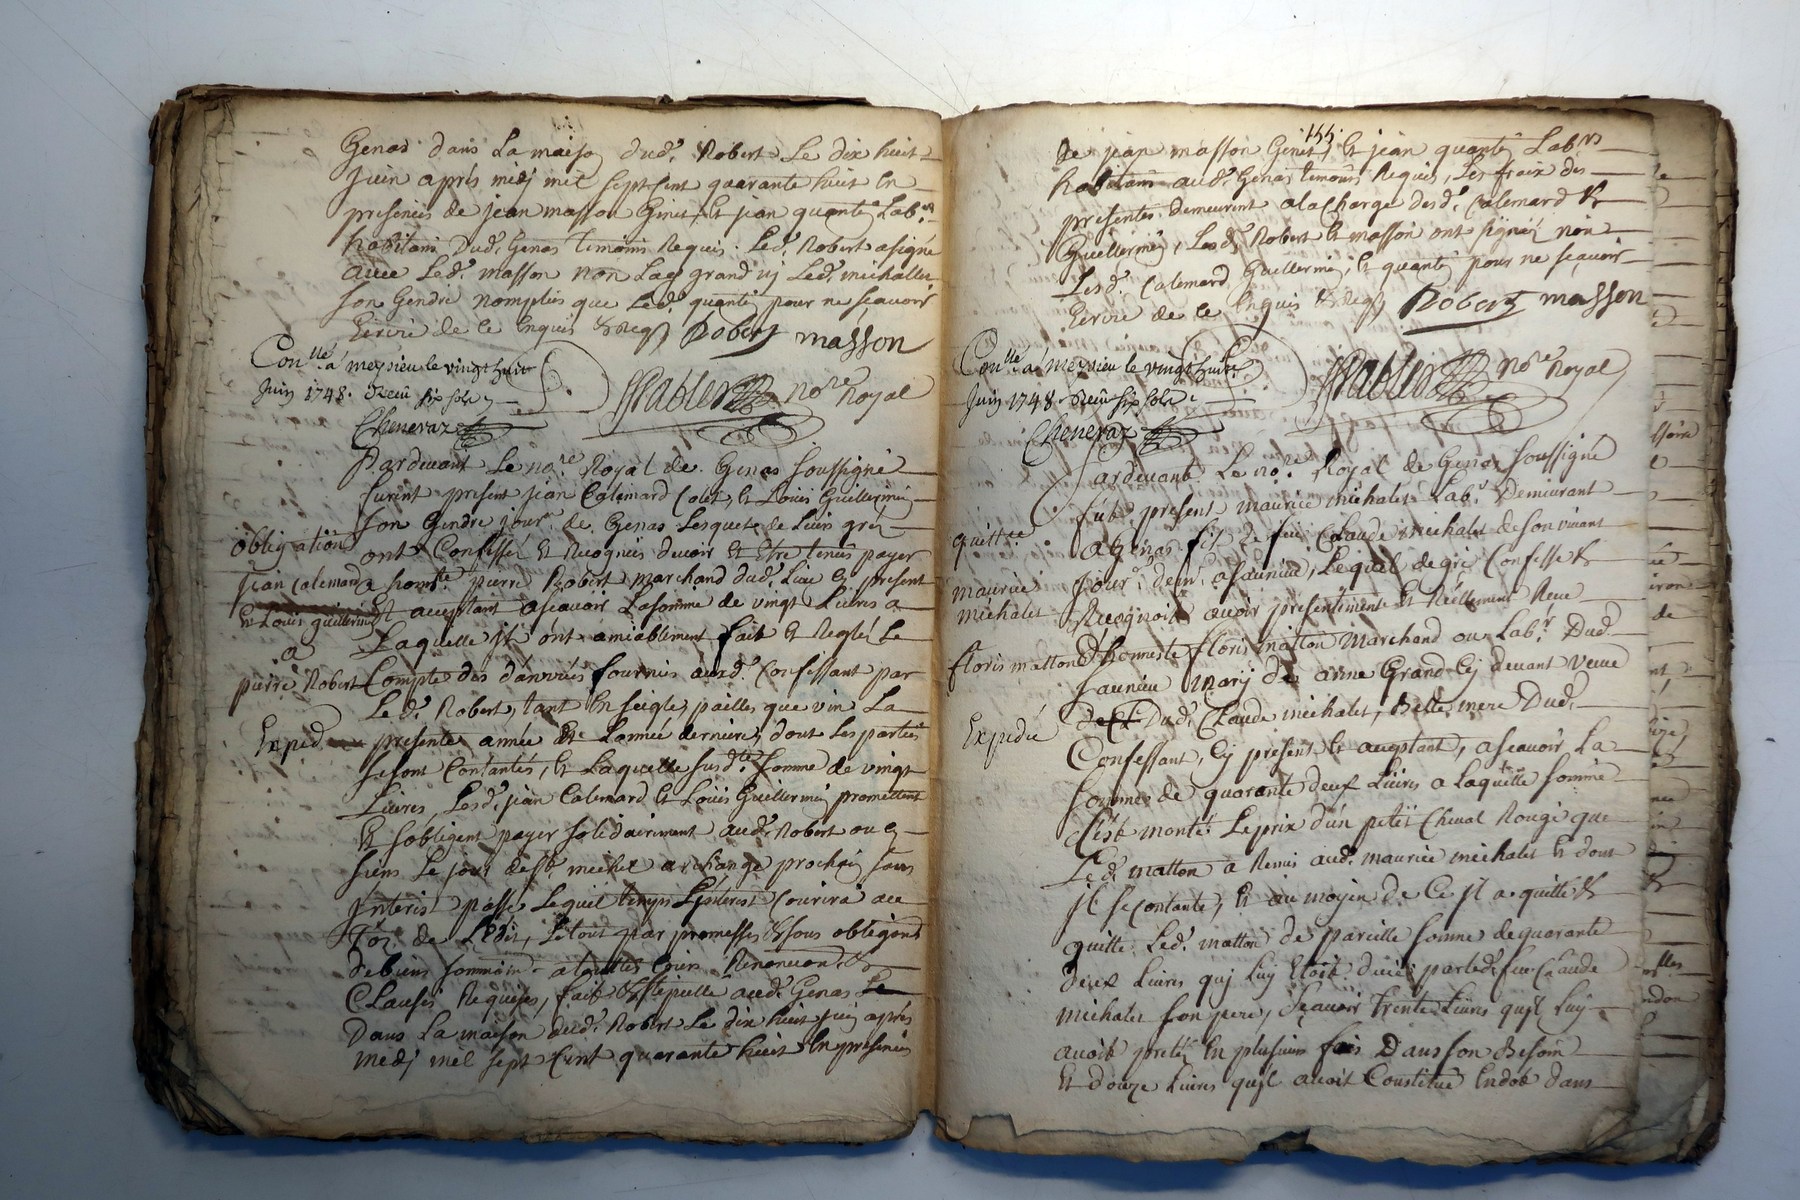 Genas dans La maison dud.t Robert Le dix huit
Juin aprés midj mil sept cent quarante huit En
presences de jean masson Ginet, Et jean quantin Lab.rs
habitans Dud.t Genas temoins Requis. Led.t Robert a signé
avec Led.t masson non Lad. grand nj Led.t michallet
son Gendre nomplus que Led.t quantin pour ne scavoir
Ecrire de ce Enquis & Reqs Robert masson
Con.llé a meysieu le vingt huit
Juin 1748. Receu six sols
Cheneraz
Rabley no.re Royal
Pardevant Le no.re Royal de Genas soussigné
furent present jean Calemard Colet, Et Loüis Guillermin
son Gendre jour.rs de Genas Lesquels de Leurs gréz
obligation
ont Confessé Et Recognus devoir Et Etre tenus payer
Jean Calemard
a hon.te pierre Robert marchand dud.t Lieu Cy present
Et Louis guillermin
Et acceptant a scavoir La somme de vingt Livres a
a
Laquelle jls ont amiablement fait Et Reglé Le
pierre Robert
Compte des danrées fournies ausd.ts Confessant par
Led.t Robert, tant En seigle, pailles que vin La
Exped.
presente année Et Lannée derniere, dont Les parties
se sont Contantés, Et Laquelle susd.te somme de vingt
Livres, Lesd.ts jean Calemard Et Loüis Guillermin promettent
Et s'obligent payer solidairement aud.t Robert ou es
siens Le jour de st. michel archange prochain sans
Interest passé Lequel temps L'Interest Courira au
for de L'Edit, Le tout par promesses & sous obligons
de biens soummiss. a touttes Cours Renoncon. &
Clauses Requises, fait & stipullé aud.t Genas
Dans La maison dud.t Robert Le dix huit juin aprés
midj mil sept Cent quarante huit En presences
155.
de jean masson Ginet, Et jean quantin Lab.rs
habitans aud.t Genas temoins Requis, Les fraix des
presentes demeurent a la Charge desd.ts Calemard &
Guillermin, Lesd.ts Robert Et masson ont signéz non
Lesd.ts Calemard, Guillermin, Et quantin pour ne scavoir
Ecrire de ce Enquis & Reqs Robert masson
Con.llé a Meysieu le vingt huit
Juin 1748. Receu six sols
Cheneraz
Rabley no.re Royal
Pardevant Le no.re Royal de Genas soussigné
fut present maurice michalet Lab.r Demeurant
quitt.ce
a Genas fils de feu Claude michalet de son vivant
maurice
jour.r dem.t a Jauniau, Lequel de gré Confesse &
michalet
Recognoit avoir presentement Et Reëllement Receu
floris matton
d'honneste floris matton Marchand ou Lab.r Dud.
Jauniau marj de anne Grand Cy devant veuve
Dud.t Claude michalet, Belle mere Dud.t
Expedié
Confessant, Cy present Et acceptant, a scavoir La
somme de quarante deux Livres a Laquelle somme
s'est monté Le prix d'un petit Cheval Rouge que
Led.t matton a Remis aud.t maurice michalet Et dont
jl se contante, Et au moyen de Ce jl a quitté &
quitte Led.t matton de pareille somme de quarante
deux Livres quj Luy Etoit duëe par led.t feu Claude
michalet son pere, Scavoir trente Livres qu'jl Luy
avoit pretté En plusieurs fois Dans son Besoin
Et douze Livres qu'jl avoit Constitué En dot dans